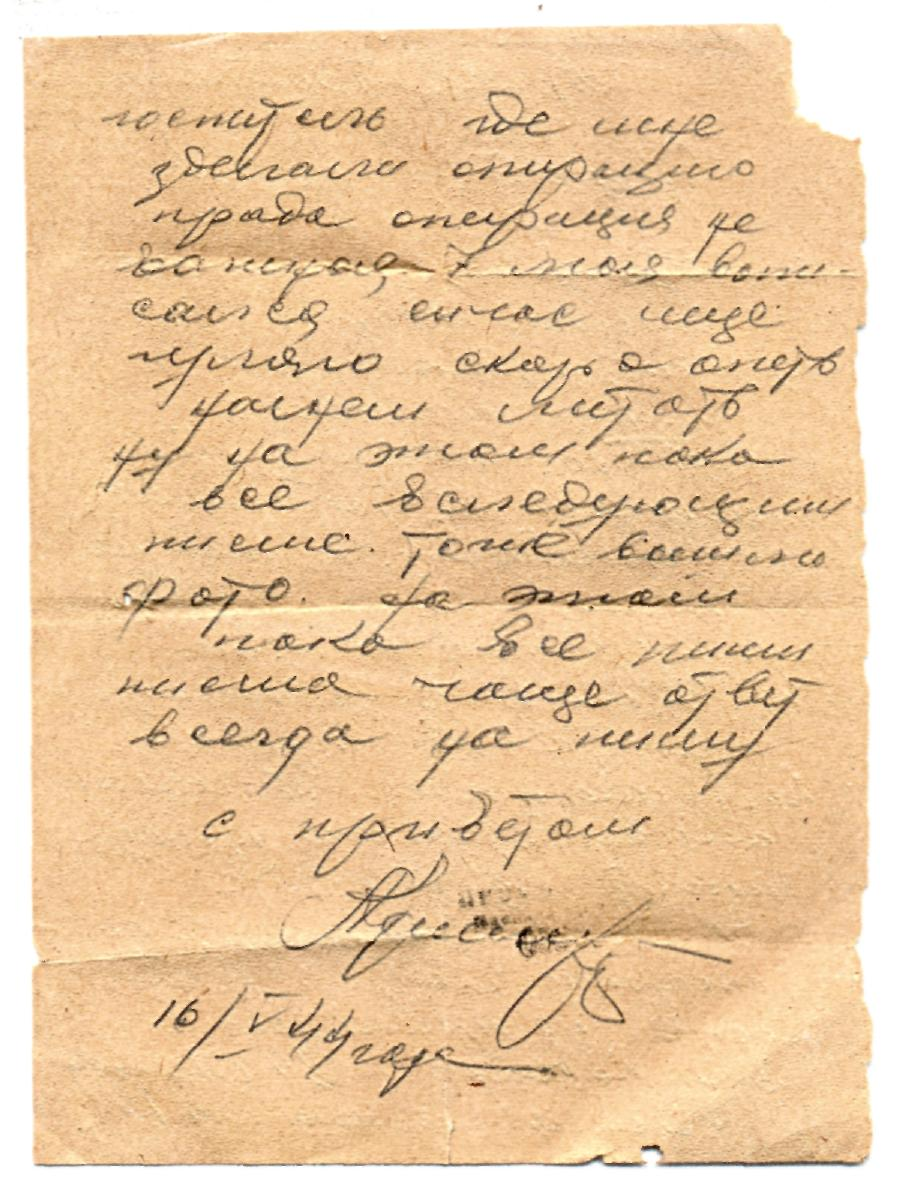 госпиталь где мне
зделали опирацию
права операция не
важная, 7 мая выпи-
сался, сичас ище
гуляю скоро опять
начнем литать
ну на этом пока
все вследующим
писме. тоже вышлю
фото. на этом
пока все пиши
писма чаще ответ
всегда на пишу
с приветом
16/V 44 года